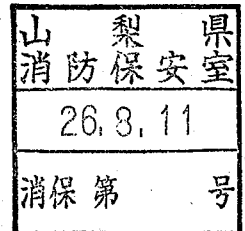 山梨県
消防保安室
26.8.11
消保第 号